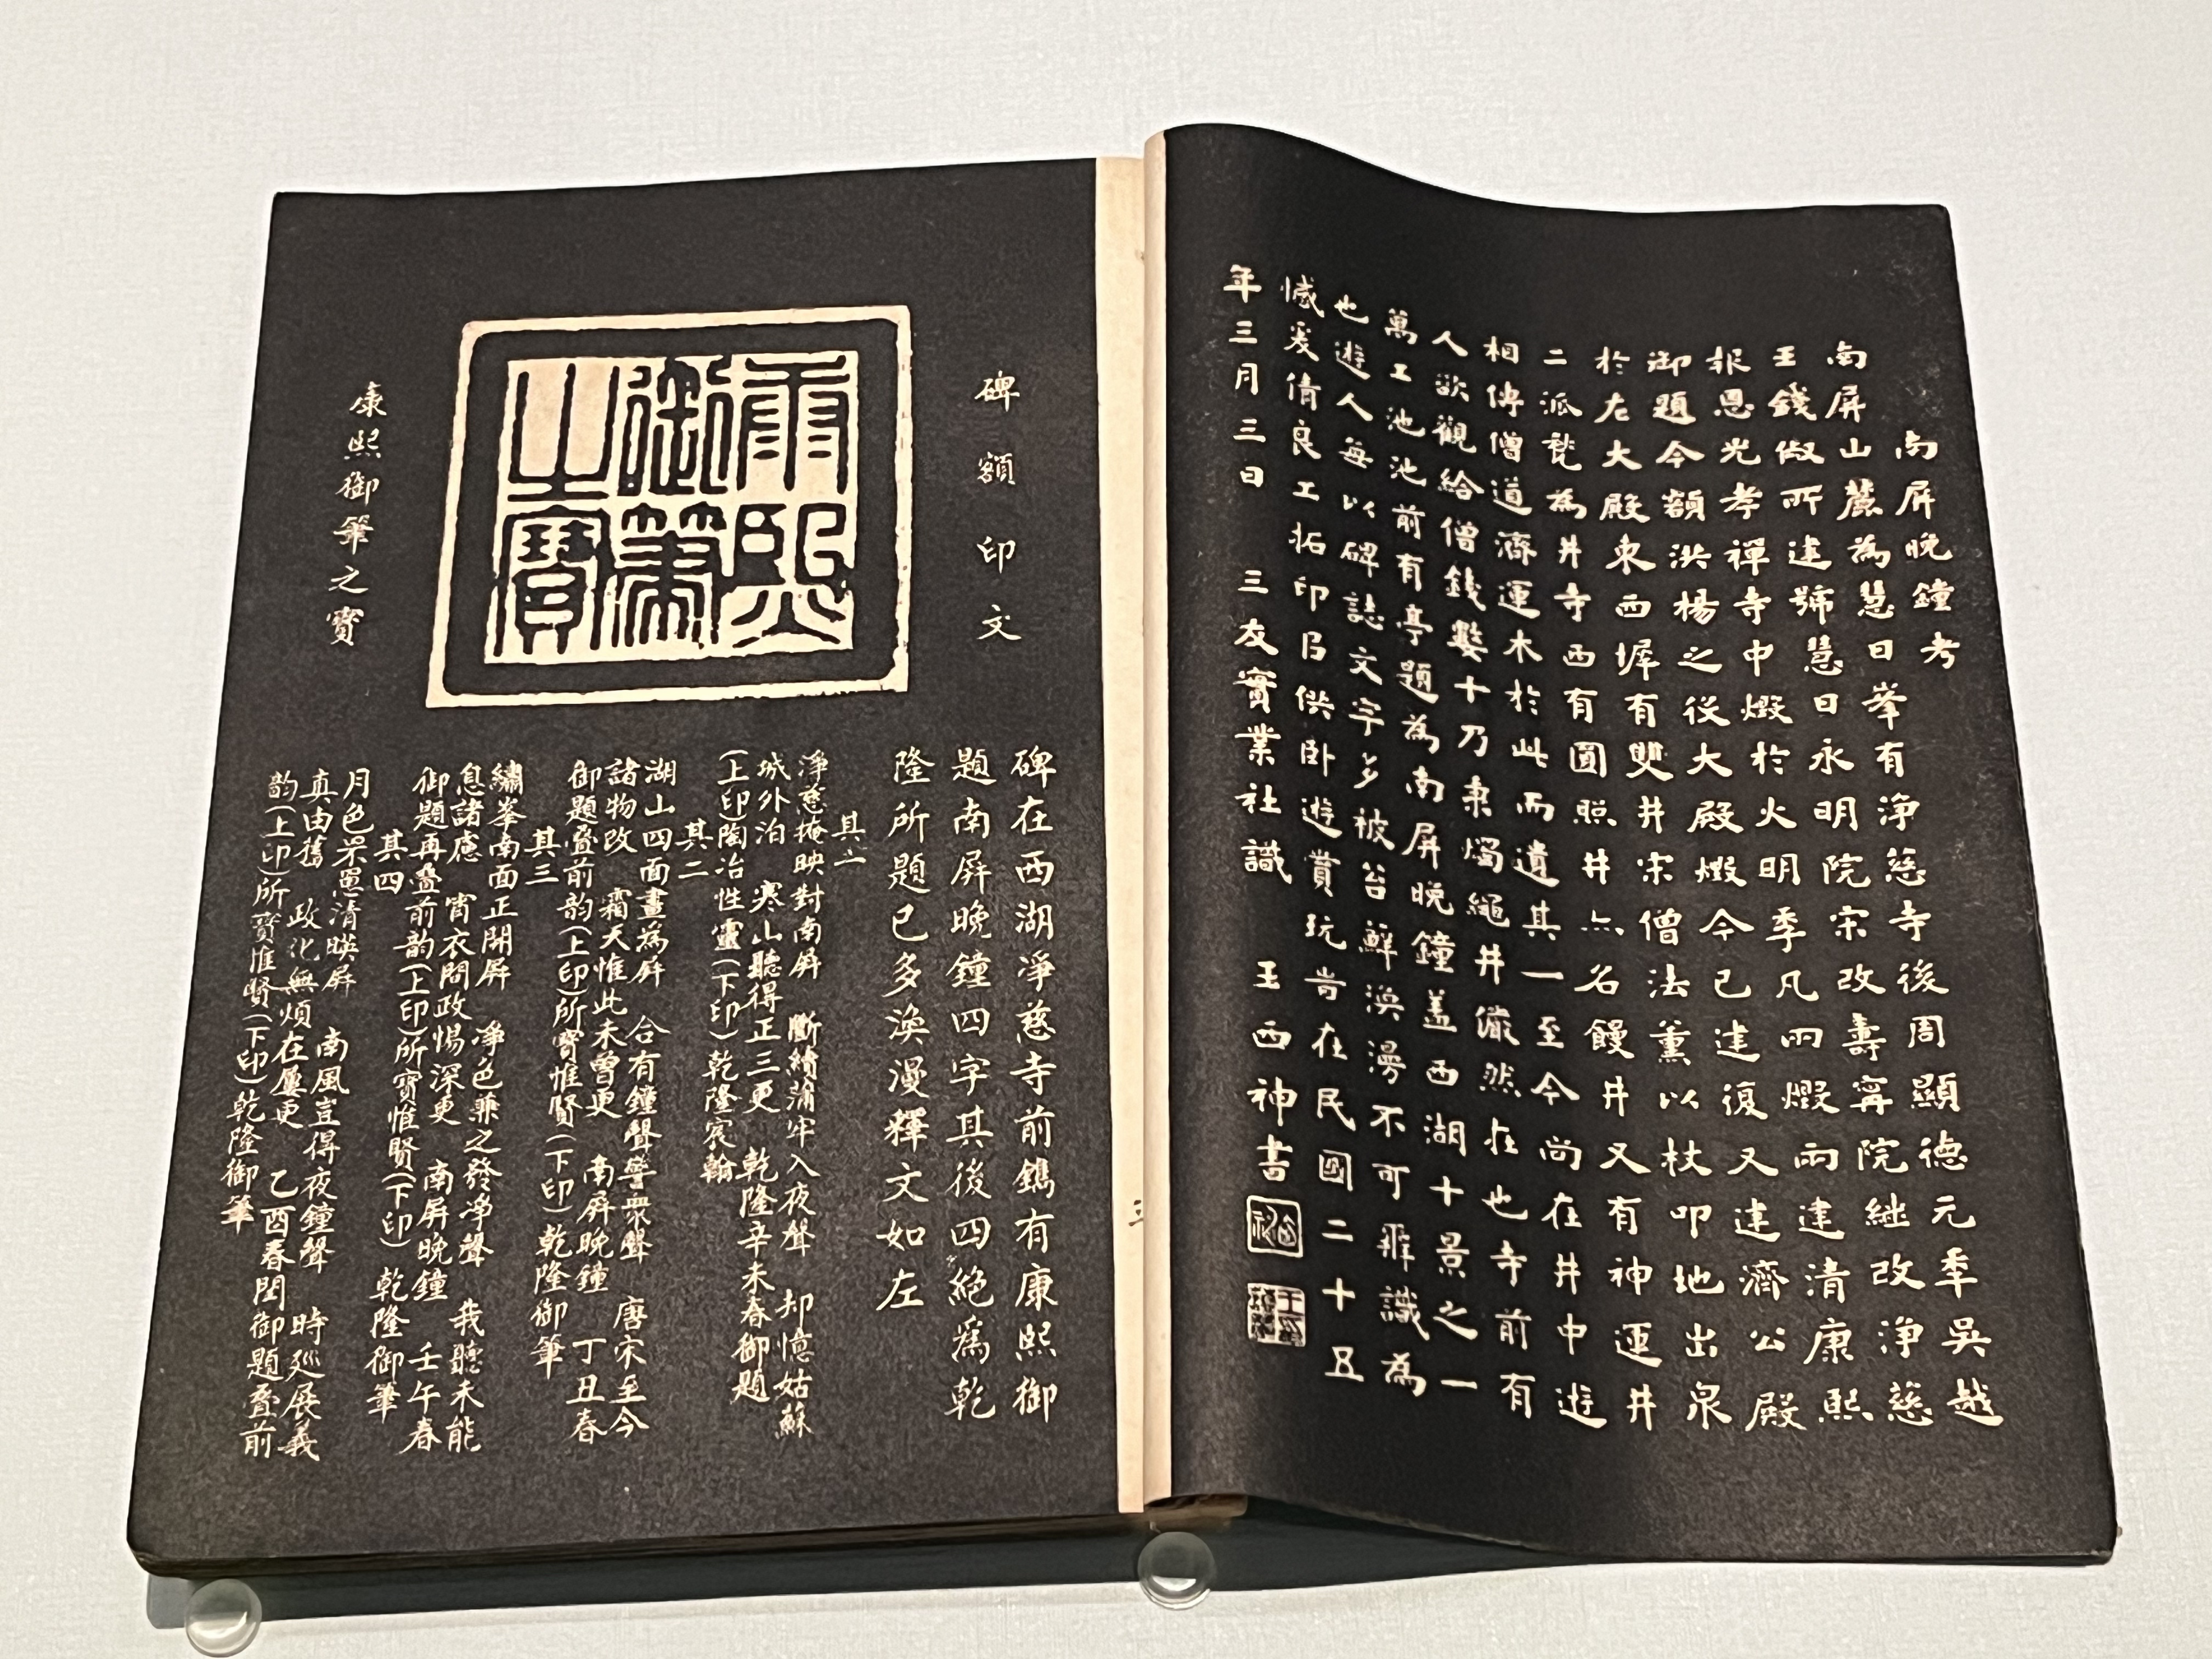 南屏晚鐘考
南屏山麓為慧日峯有淨慈寺後周顯德元季吳越
王錢俶所建號慧日永明院宋改壽寧院繼改淨慈
報恩光孝禪寺中燬於火明季凡兩燬兩建清康熙
御題今額洪楊之役大殿燬今已建復又建濟公殿
於右大殿東西墀有雙井宋僧法薰以杖叩地出泉
二派甃為井寺西有圓照井亦名饅井又有神運井
相傳僧道濟運木於此而遺其一至今尚在井中遊
人欲觀給僧錢數十乃束燭繩井儼然在也寺前有
萬工池池前有亭題為南屏晚鐘蓋西湖十景之一
也遊人每以碑誌文字多被台鮮渙漫不可辨識為
憾爰倩良工拓印㠯供卧遊賞玩岢在民國二十五
年三月三日 三友實業社識 王西神書
碑額印文
康熙御筆之寶
康熙御筆之寶
碑在西湖淨慈寺前鐫有康熙御
題南屏晚鐘四字其後四絕為乾
隆所題已多渙漫釋文如左
其一
淨慈掩映對南屏 斷續蒲牢入夜聲 却憶姑蘇
城外泊 寒山聽得正三更 乾隆辛未春御題
(上印)陶冶性靈(下印)乾隆宸翰
其二
湖山四面畫為屏 合有鐘聲警眾聲 唐宋至今
諸物改 霜天惟此未曾更 南屏晚鐘 丁丑春
御題疊前韵(上印)所寶惟賢(下印)乾隆御筆
其三
繡峯南面正開屏 淨色兼之發淨聲 我聽未能
息諸慮 宵衣問政惕深更 南屏晚鐘 壬午春
御題再疊前韵(上印)所寶惟賢(下印)乾隆御筆
其四
月色罘罳清暎屏 南風豈得夜鐘聲 時廵展義
真由舊 政化無煩在屢更 乙酉春閏御題疊前
韵(上印)所寶惟賢(下印)乾隆御筆